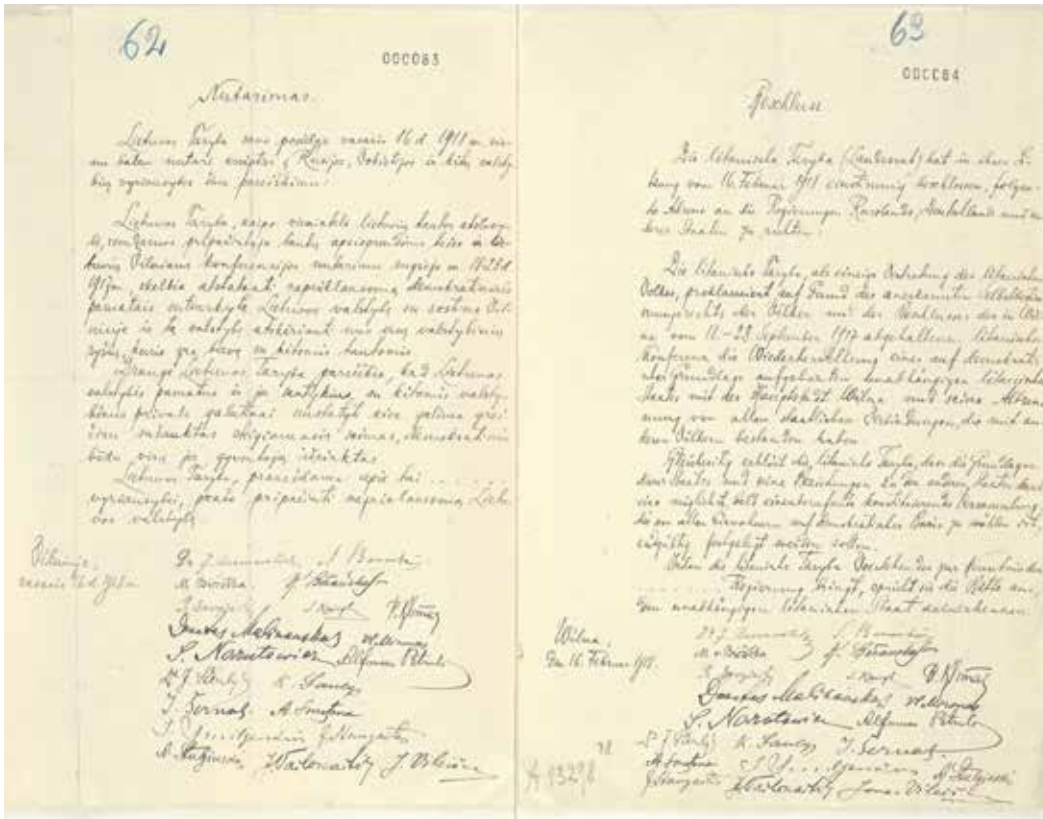 62
000083
Nutarimas.
Lietuvos Taryba savo posėdyje vasario 16 d. 1918 m. vie-
nu balsu nutarė kreiptis į Rusijos, Vokietijos ir kitų valsty-
bių vyriausybes šiuo pareiškimu:
Lietuvos Taryba, kaipo vienintelė lietuvių tautos atstovy-
bė, remdamos pripažintąja tautų apsisprendimo teise ir lie-
tuvių Vilniaus konferencijos nutarimu rugsėjo m. 18-23 d.
1917 m., skelbia atstatanti nepriklausomą demokratiniais
pamatais sutvarkytą Lietuvos valstybę su sostine Vil-
niuje ir tą valstybę atskirianti nuo visų valstybinių
ryšių, kurie yra buvę su kitomis tautomis.
Drauge Lietuvos Taryba pareiškia, kad Lietuvos
valstybės pamatus ir jos santykius su kitomis valsty-
bėmis privalo galutinai nustatyti kiek galima grei-
čiau sušauktas steigiamasis seimas, demokratiniu
būdu visų jos gyventojų išrinktas.
Lietuvos Taryba, pranešdama apie tai ........
vyriausybei, prašo pripažinti nepriklausomą Lietu-
vos valstybę.
Vilniuje,
vasario 16 d. 1918 m.
Dr J. Basanavičius S. Banaitis
M. Biržiška K. Bizauskas
Pr. Dovydaitis J. Kairys P. Klimas
Donatas Malinauskas Wl. Mironas
S. Narutowicz Alfonsas Petrulis
Dr J. Šaulys K. Šaulys
J. Šernas A. Smetona
J. Smilgevičius J. Staugaitis
A. Stulginskis J. Vailokaitis J. Vileišis
63
000084
Beschluss
Die litauische Taryba (Landesrat) hat in ihrer Si-
tzung vom 16. Februar 1918 einstimmig beschlossen, folgen-
de Adresse an die Regierungen Russlands, Deutschlands und an-
derer Staaten zu richten:
Die litauische Taryba, als einzige Vertretung des litauischen
Volkes, proklamiert auf Grund des anerkannten Selbstbestim-
mungsrechts der Völker und des Beschlusses der in Wil-
na vom 18.-23. September 1917 abgehaltenen litauischen
Konferenz die Wiederherstellung eines auf demokrati-
scher Grundlage aufgebauten unabhängigen litauischen
Staates mit der Hauptstadt Wilna und seine Abtren-
nung von allen staatlichen Verbindungen, die mit an-
deren Völkern bestanden haben.
Gleichzeitig erklärt die litauische Taryba, dass die Grundlagen
dieses Staates und seine Beziehungen zu den anderen Staaten durch
eine möglichst bald einzuberufende konstituierende Versammlung,
die von allen Einwohnern auf demokratischer Basis zu wählen ist,
endgültig festgelegt werden sollen.
Indem die litauische Taryba Vorstehendes zur Kenntnis der
........ Regierung bringt, spricht sie die Bitte aus,
den unabhängigen litauischen Staat anzuerkennen.
Wilna,
den 16. Februar 1918.
Dr J. Basanavičius S. Banaitis
M. Biržiška K. Bizauskas
Pr. Dovydaitis J. Kairys P. Klimas
Donatas Malinauskas Wl. Mironas
S. Narutowicz Alfonsas Petrulis
Dr J. Šaulys K. Šaulys J. Šernas
A. Smetona J. Smilgevičius A. Stulginskis
J. Staugaitis J. Vailokaitis Jonas Vileišis
18
A 13298